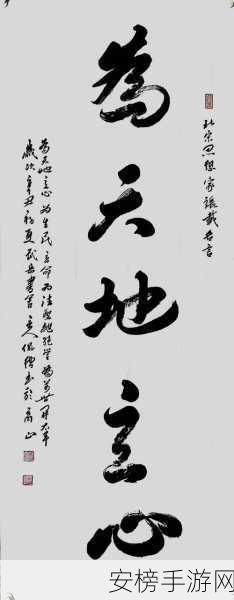 北宋思想家張載名言
為天地立心
為天地立心為生民立命為往聖繼絕學為萬世開太平
歲次辛丑初夏書於
安榜手游网